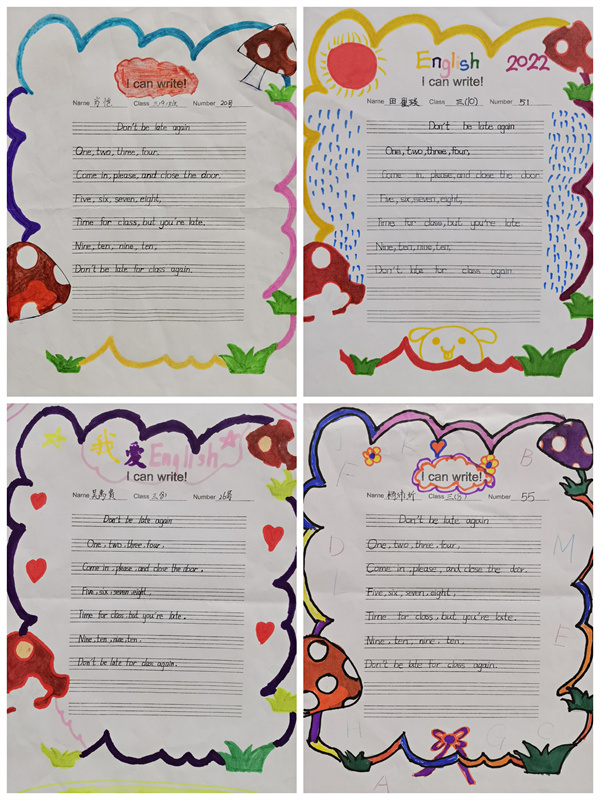 I can write!
Name Class Number 20号
Don't be late again
One, two, three, four,
Come in, please, and close the door.
Five, six, seven, eight,
Time for class, but you're late.
Nine, ten, nine, ten,
Don't be late for class again.
English 2022
I can write!
Name Class 三(10) Number 51
Don't be late again
One, two, three, four,
Come in, please, and close the door.
Five, six, seven, eight,
Time for class, but you're late.
Nine, ten, nine, ten,
Don't late for class again.
我爱English
I can write!
Name Class Number 26号
Don't be late again
One, two, three, four,
Come in, please, and close the door,
Five, six, seven, eight,
Time for class, but you're late.
Nine, ten, nine, ten.
Don't be late for class again.
J K B
F
I can write!
Name Class Number 55
Don't be late again
One, two, three, four,
Come in, please, and close the door.
D M
Five, six, seven, eight,
Time for class, but you're late.
E
Nine, ten, nine, ten,
Don't be late for class again.
H G C
A